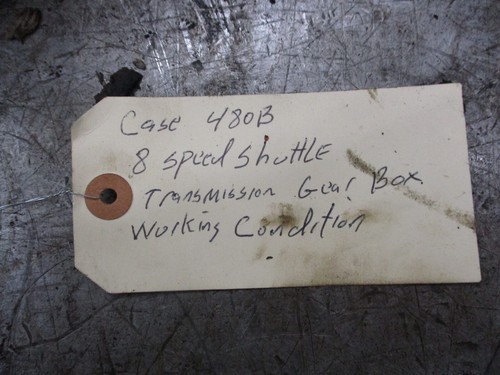 Case 480B
8 Speed Shuttle
Transmission Gear Box
Working Condition